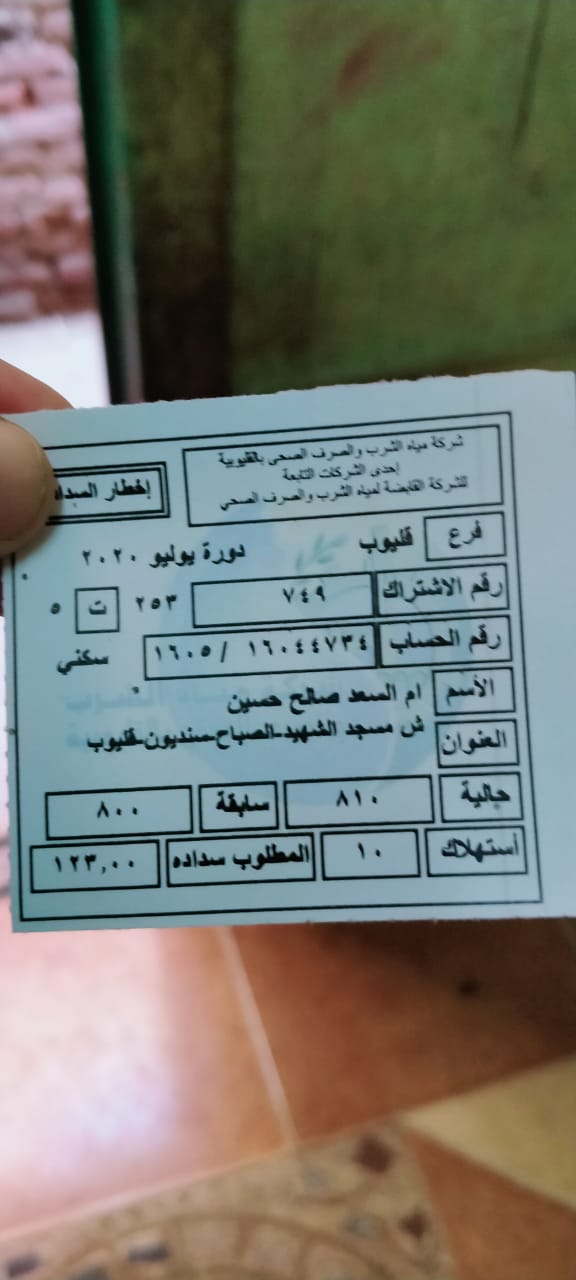 شركة مياه الشرب والصرف الصحى بالقليوبية
إحدى الشركات التابعة
للشركة القابضة لمياه الشرب والصرف الصحي
إخطار السداد
فرع قليوب دورة يوليو ٢٠٢٠
رقم الاشتراك ٧٤٩ ٢٥٣ ت ٥
رقم الحساب ١٦٠٤٤٧٣٤ / ١٦٠٥ سكني
الأسم ام السعد صالح حسين
العنوان ش مسجد الشهيد-الصباح-سنديون-قليوب
حالية ٨١٠ سابقة ٨٠٠
أستهلاك ١٠ المطلوب سداده ١٢٣,٠٠